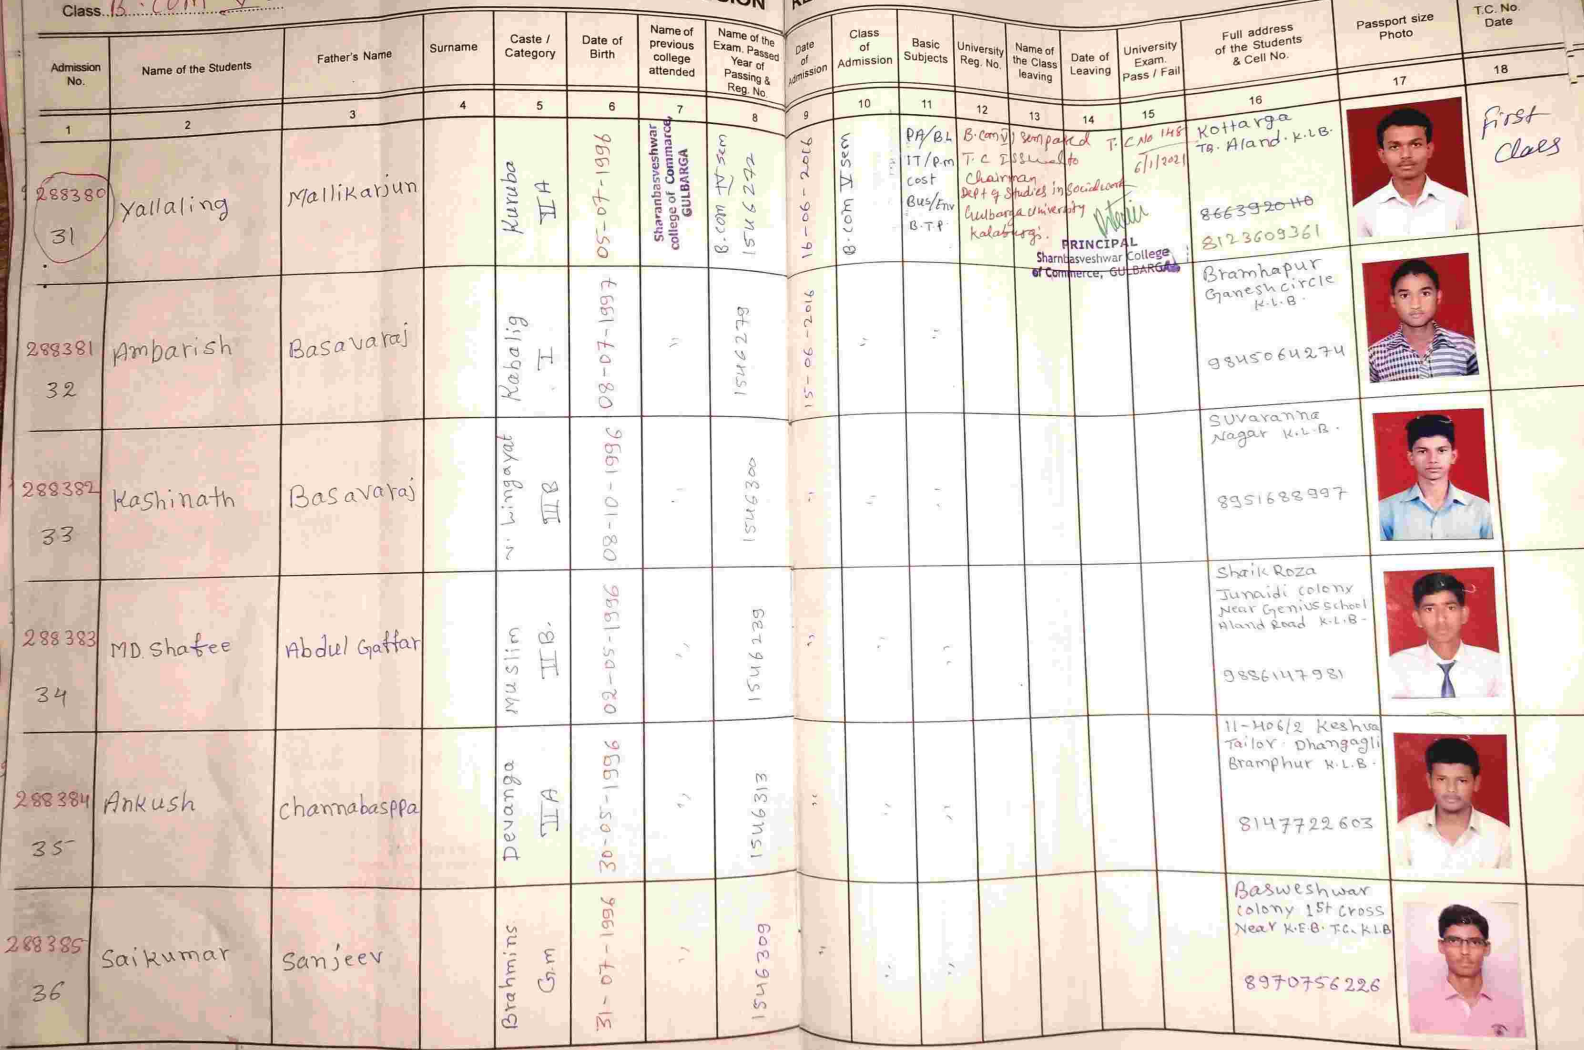 Class. B.com V
Admission No.
Name of the Students
Father's Name
Surname
Caste / Category
Date of Birth
Name of previous college attended
Name of the Exam. Passed Year of Passing & Reg. No.
Date of Admission
Class of Admission
Basic Subjects
University Reg. No.
Name of the Class leaving
Date of Leaving
University Exam. Pass / Fail
Full address of the Students & Cell No.
Passport size Photo
T.C. No. Date
1 2 3 4 5 6 7 8 9 10 11 12 13 14 15 16 17 18
288380
31
Yallaling
Mallikarjun
Kuruba
II A
05-07-1996
Sharanbasveshwar
college of Commerce,
GULBARGA
B.com IV sem
1546272
16-06-2016
B.com V sem
PA/BL
IT/P.m
Cost
Bus/Env
B.T.P
B.com VI sem passed
T.C Issued to
Chairman
Dept of Studies in Social work
Gulbarga University
Kalaburgi.
T.C No 148
6/1/2021
PRINCIPAL
Sharnbasveshwar College
of Commerce, GULBARGA
Kottarga
TQ. Aland. K.L.B.
8663920110
8123609361
First
Class
288381
32
Ambarish
Basavaraj
Kabalig
I
08-07-1997
"
1546279
15-06-2016
"
"
Bramhapur
Ganesh circle
K.L.B.
9845064274
288382
33
Kashinath
Basavaraj
V. Lingayat
III B
08-10-1996
"
1546300
"
"
"
Suvaranna
Nagar K.L.B.
8951688997
288383
34
MD. Shafee
Abdul Gaffar
Muslim
II B.
02-05-1996
"
1546239
"
"
"
Shaik Roza
Junaidi colony
Near Genius School
Aland Road K.L.B.
9886147981
288384
35
Ankush
Channabasppa
Devanga
II A
30-05-1996
"
1546313
"
"
"
11-406/2 Keshva
Tailor Dhangagli
Bramphur K.L.B.
8147722603
288385
36
Saikumar
Sanjeev
Brahmins
G.m
31-07-1996
"
1546309
"
"
"
Basweshwar
colony 1st Cross
Near K.E.B. T.C. K.L.B
8970756226